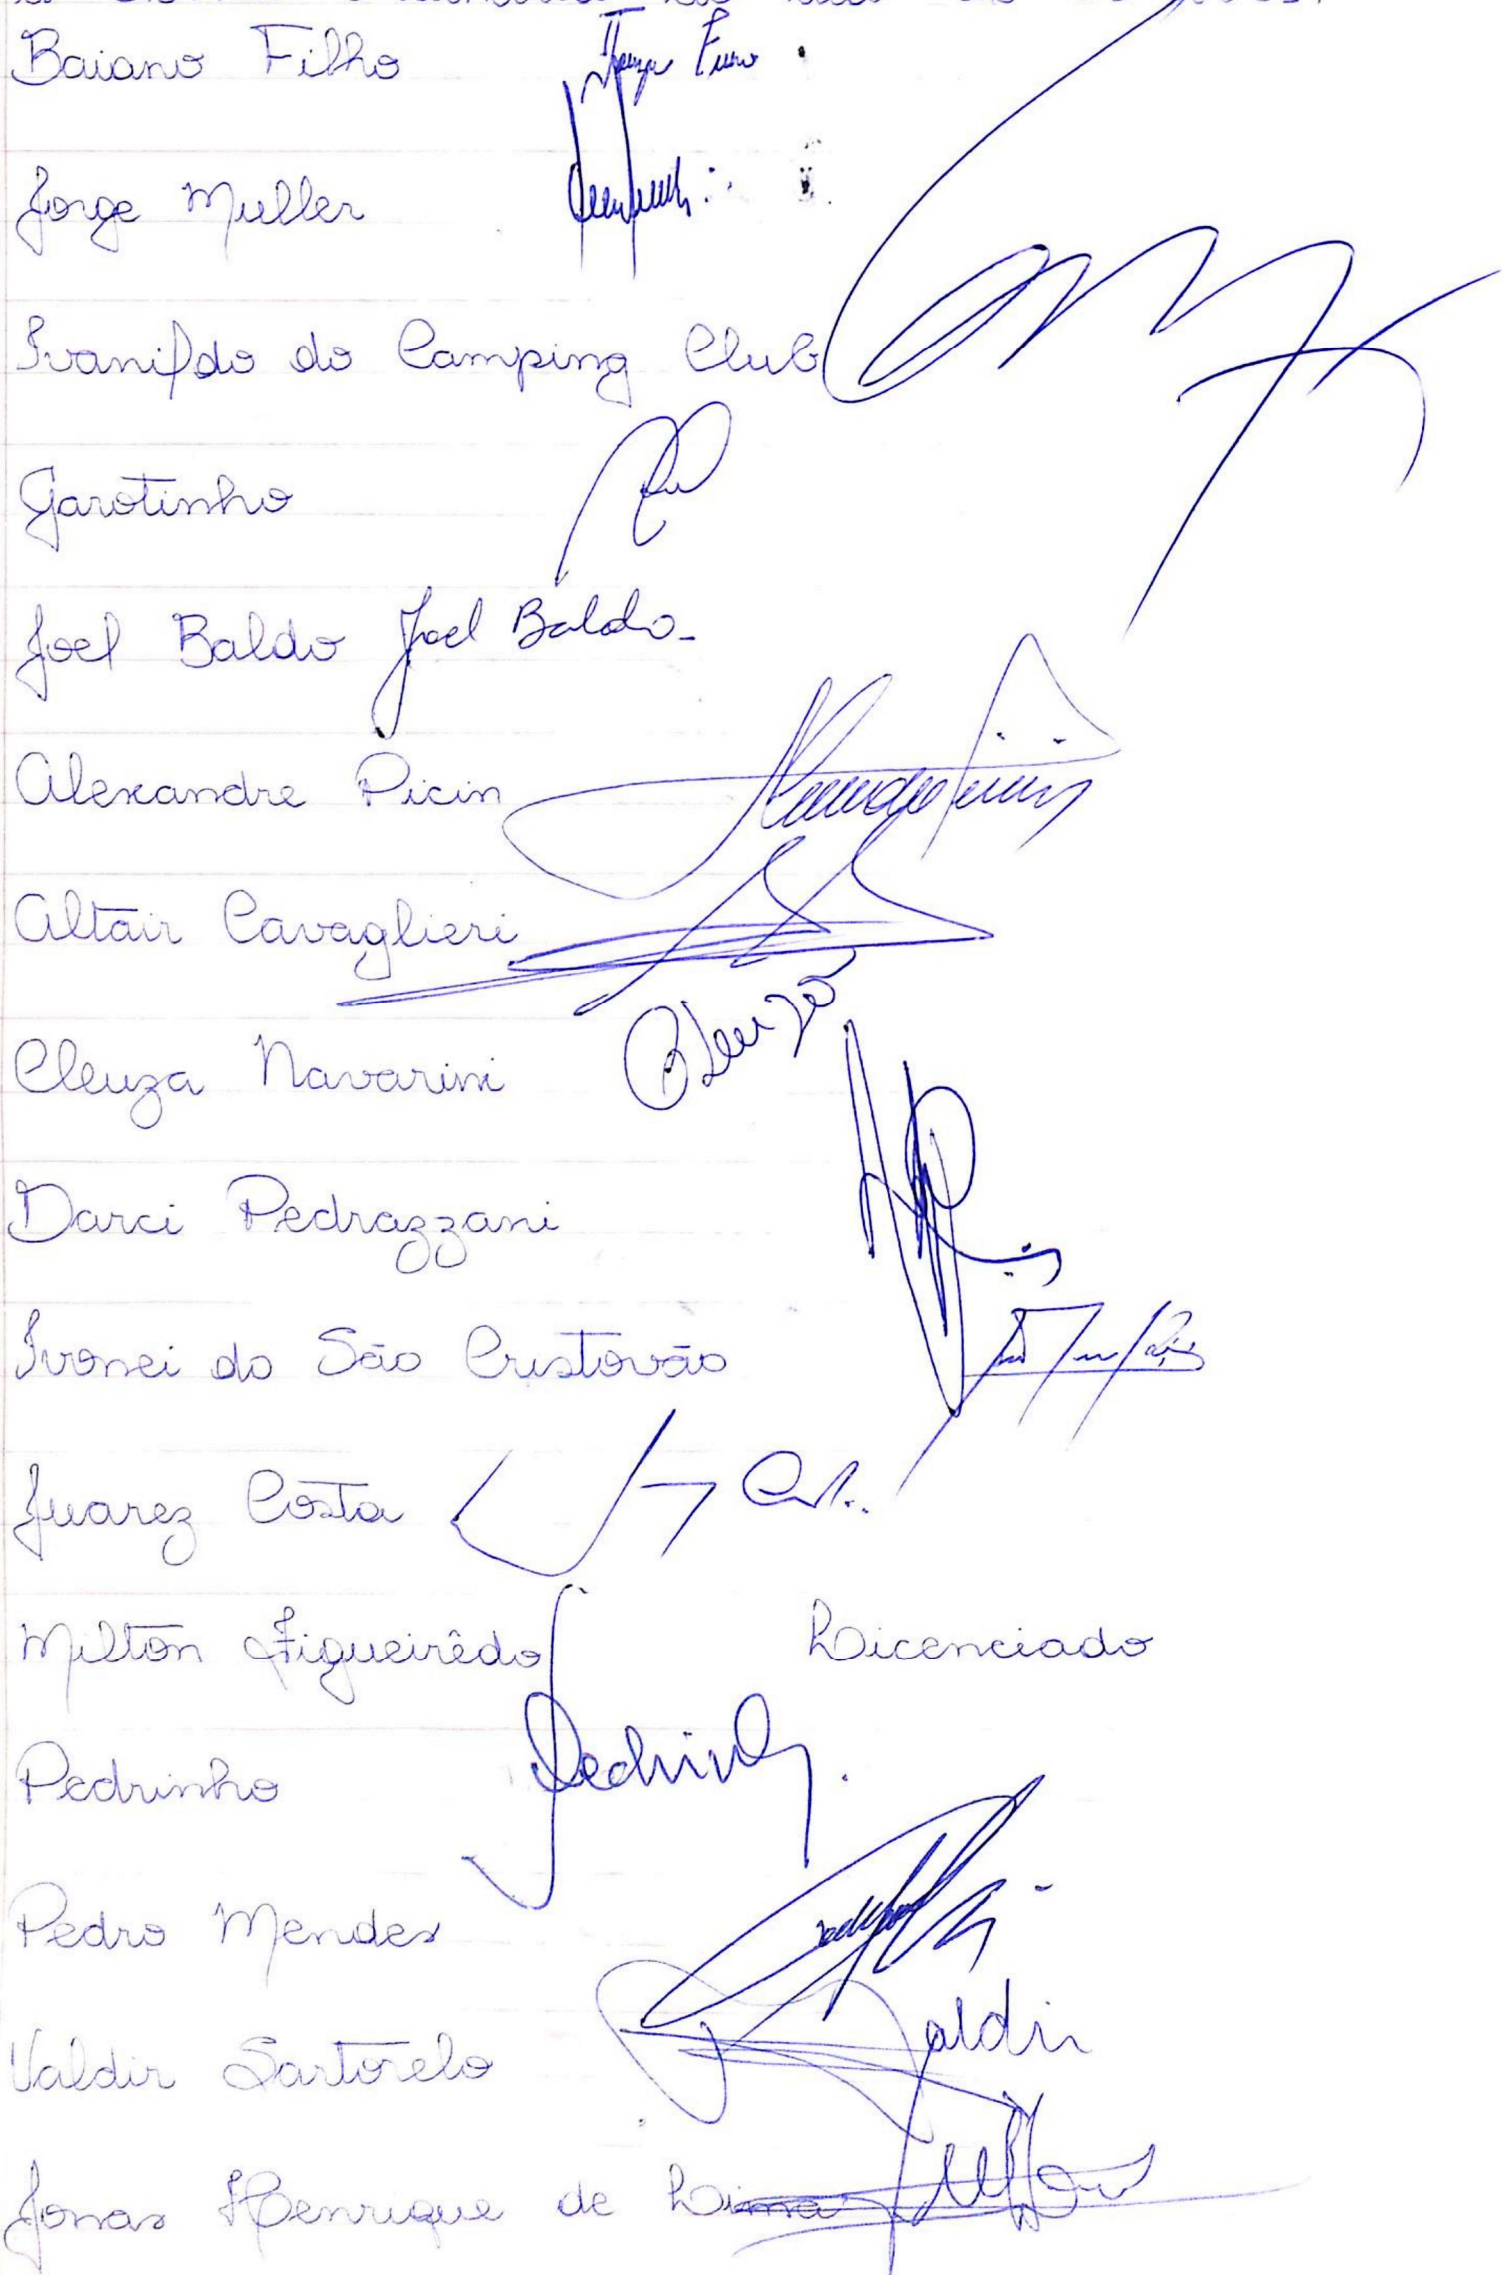 Baiano Filho
Jorge Muller
Ivanildo do Camping Club
Garotinho
Joel Baldo Joel Baldo
Alexandre Picin
Altair Cavaglieri
Cleuza Navarini Cleuza
Darci Pedrazzani
Ivonei do São Cristovão
Juarez Costa
Milton Figueirêdo Licenciado
Pedrinho Pedrinho
Pedro Mendes
Valdir Sartorelo Valdir
Jonas Henrique de Lima